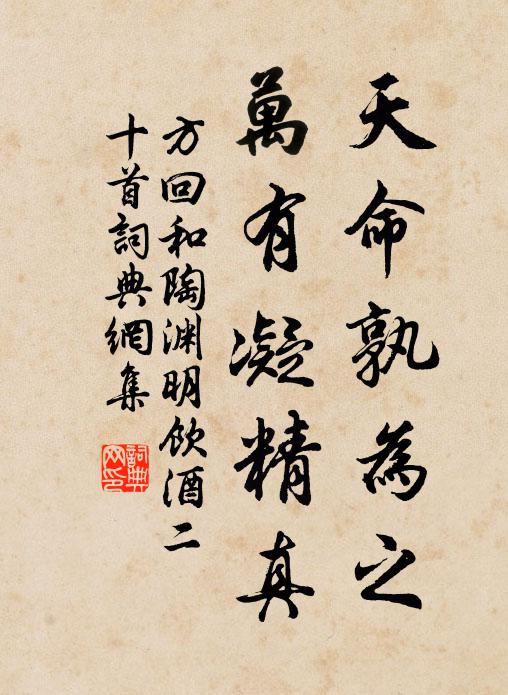 天命孰為之
萬有凝精真
方回和陶渊明飲酒二
十首詞典網集
詞典
网印